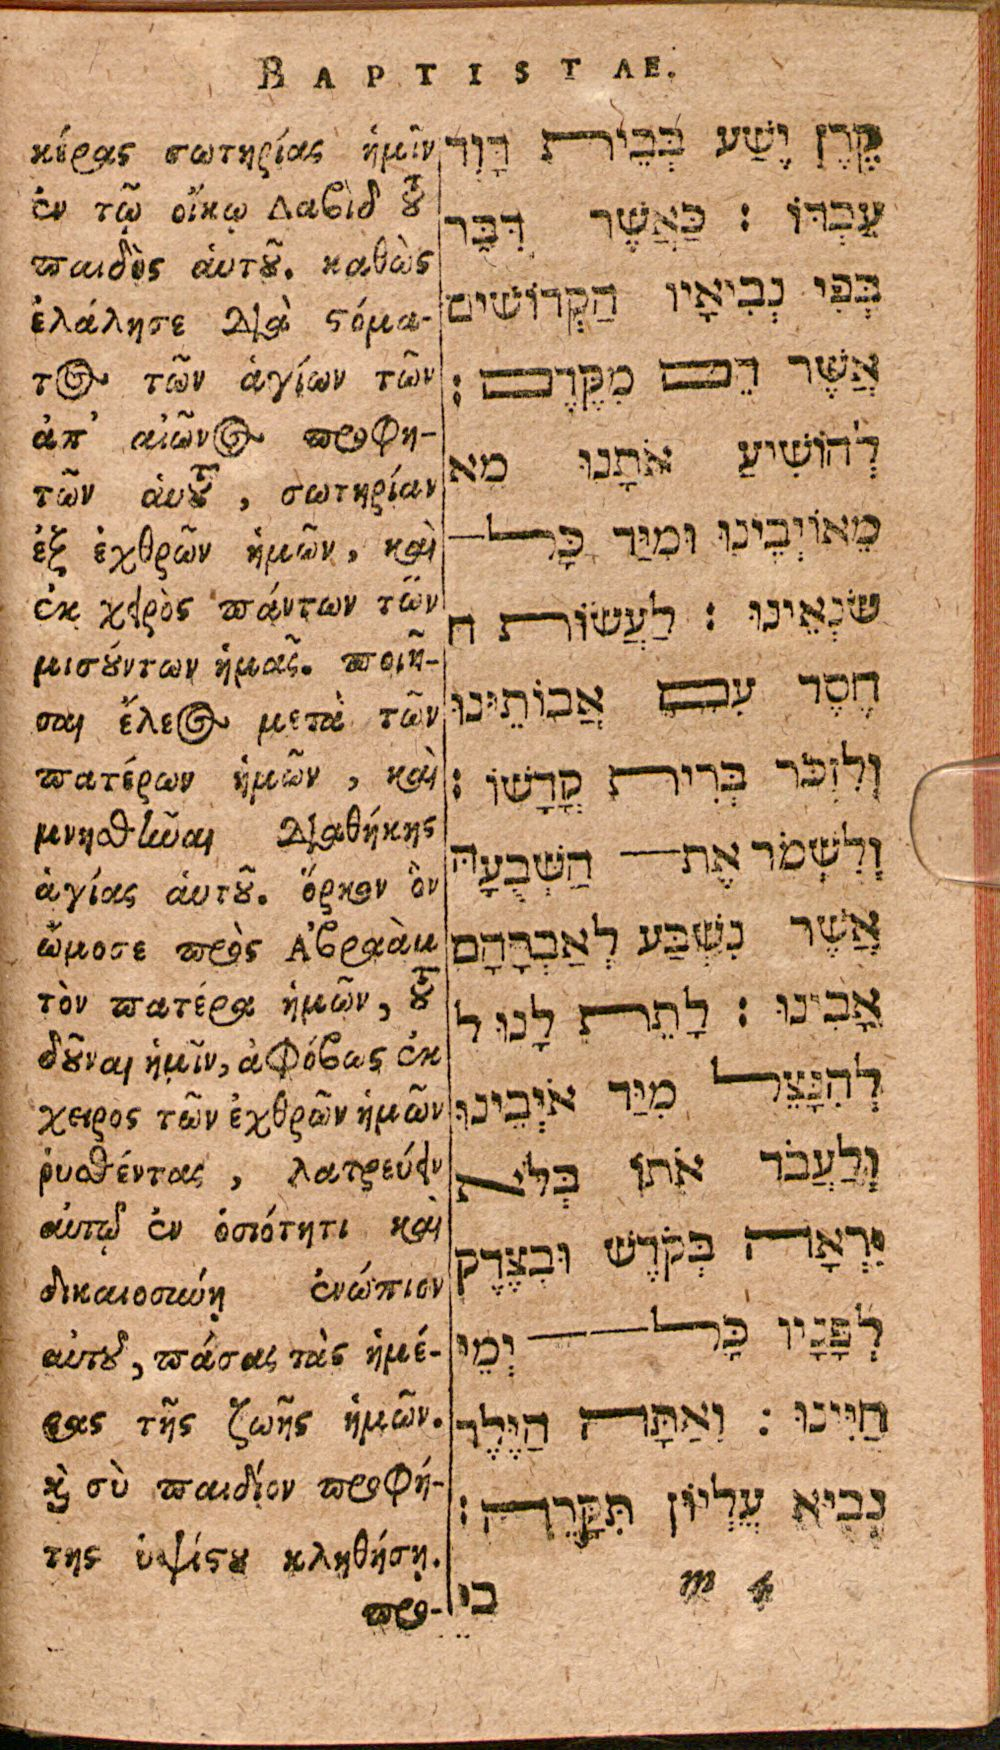 BAPTISTAE.
κέρας σωτηρίας ἡμῖν
ἐν τῷ οἴκῳ Δαβὶδ τοῦ
παιδὸς ἁυτοῦ. καθὼς
ἐλάλησε διὰ στόμα-
τος τῶν ἁγίων τῶν
ἀπ' αἰῶνος προφη-
τῶν ἁυτοῦ, σωτηρίαν
ἐξ ἐχθρῶν ἡμῶν, καὶ
ἐκ χειρὸς πάντων τῶν
μισούντων ἡμᾶς. ποιῆ-
σαι ἔλεος μετὰ τῶν
πατέρων ἡμῶν, καὶ
μνησθῆναι διαθήκης
ἁγίας ἁυτοῦ. ὅρκον ὃν
ὤμοσε πρὸς Ἀβραὰμ
τὸν πατέρα ἡμῶν, τοῦ
δοῦναι ἡμῖν, ἀφόβως ἐκ
χειρος τῶν ἐχθρῶν ἡμῶν
ῥυσθέντας, λατρεύειν
αὐτῷ ἐν ὁσιότητι καὶ
δικαιοσύνῃ ἐνώπιον
αὐτοῦ, πάσας τὰς ἡμέ-
ρας τῆς ζωῆς ἡμῶν.
καὶ σὺ παιδίον προφή-
της ὑψίστου κληθήσῃ.
προ-
קֶרֶן יֶשַׁע בְּבֵית דָּוִד
עַבְדּוֹ : כַּאֲשֶׁר דִּבֶּר
בְּפִי נְבִיאָיו הַקְּדוֹשִׁים
אֲשֶׁר הֵם מִקֶּדֶם :
לְהוֹשִׁיעַ אֹתָנוּ מֵא
מֵאוֹיְבֵינוּ וּמִיַּד כָּל־
שֹׂנְאֵינוּ : לַעֲשׂוֹת ח
חֶסֶד עִם אֲבוֹתֵינוּ
וְלִזְכֹּר בְּרִית קָדָשׁוֹ :
וְלִשְׁמֹר אֶת־ הַשְּׁבֻעָה
אֲשֶׁר נִשְׁבַּע לְאַבְרָהָם
אָבִינוּ : לָתֵת לָנוּ ל
לְהִנָּצֵל מִיַּד אֹיְבֵינוּ
וְלַעֲבֹד אֹתוֹ בְּלֹא
יִרְאָה בְּקֹדֶשׁ וּבְצֶדֶק
לְפָנָיו כָּל־ יְמֵי
חַיֵּינוּ : וְאַתָּה הַיֶּלֶד
נְבִיא עֶלְיוֹן תִּקָּרֵה :
m כִי